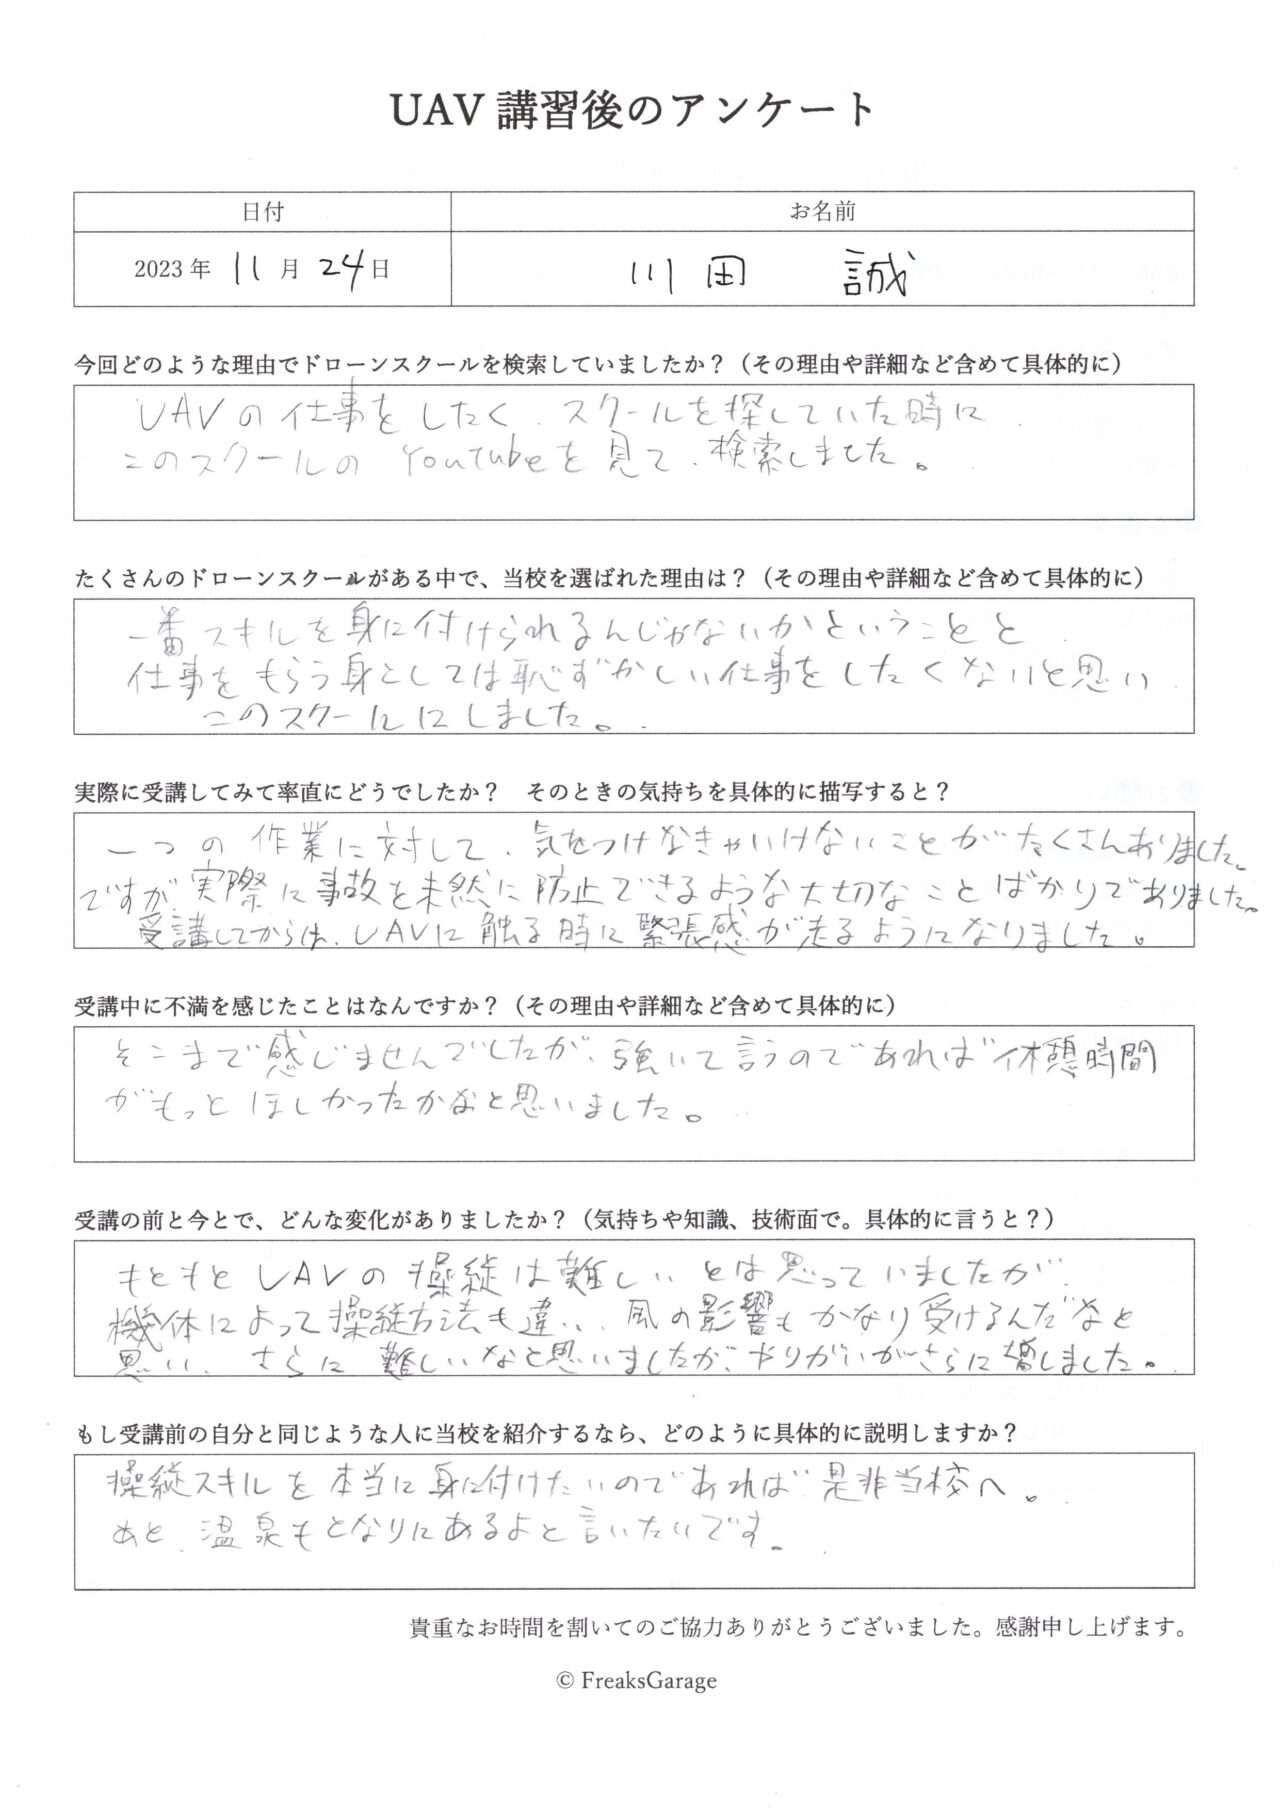 UAV 講習後のアンケート
日付 お名前
2023 年 11 月 24 日 川田 誠
今回どのような理由でドローンスクールを検索していましたか？（その理由や詳細など含めて具体的に）
UAVの仕事をしたく、スクールを探していた時に
このスクールの Youtubeを見て、検索しました。
たくさんのドローンスクールがある中で、当校を選ばれた理由は？（その理由や詳細など含めて具体的に）
一番スキルを身に付けられるんじゃないかということと
仕事をもらう身としては恥ずかしい仕事をしたくないと思い
このスクールにしました。
実際に受講してみて率直にどうでしたか？　そのときの気持ちを具体的に描写すると？
一つの作業に対して、気をつけなきゃいけないことがたくさんありました。
ですが、実際に事故を未然に防止できるような大切なことばかりでありました。
受講してからは、UAVに触る時に緊張感が走るようになりました。
受講中に不満を感じたことはなんですか？（その理由や詳細など含めて具体的に）
そこまで感じませんでしたが、強いて言うのであれば休憩時間
がもっとほしかったかなと思いました。
受講の前と今とで、どんな変化がありましたか？（気持ちや知識、技術面で。具体的に言うと？）
もともとUAVの操縦は難しいとは思っていましたが、
機体によって操縦方法も違い、風の影響もかなり受けるんだなと
思い、さらに難しいなと思いましたが、やりがいがさらに増しました。
もし受講前の自分と同じような人に当校を紹介するなら、どのように具体的に説明しますか？
操縦スキルを本当に身に付けたいのであれば是非当校へ。
あと、温泉もとなりにあるよと言いたいです。
貴重なお時間を割いてのご協力ありがとうございました。感謝申し上げます。
© FreaksGarage